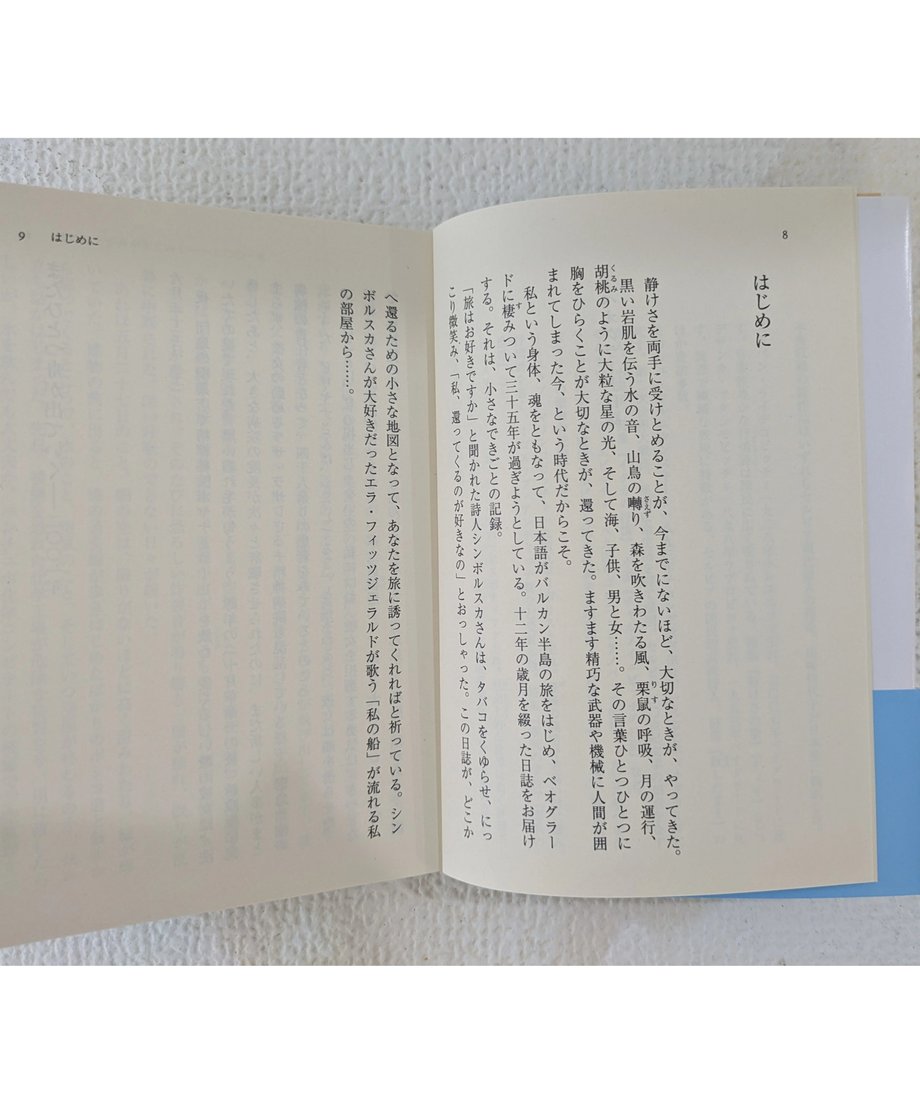 8
はじめに
静けさを両手に受けとめることが、今までにないほど、大切なときが、やってきた。
黒い岩肌を伝う水の音、山鳥の囀り、森を吹きわたる風、栗鼠の呼吸、月の運行、
胡桃のように大粒な星の光、そして海、子供、男と女……。その言葉ひとつひとつに
胸をひらくことが大切なときが、還ってきた。ますます精巧な武器や機械に人間が囲
まれてしまった今、という時代だからこそ。
私という身体、魂をともなって、日本語がバルカン半島の旅をはじめ、ベオグラー
ドに棲みついて三十五年が過ぎようとしている。十二年の歳月を綴った日誌をお届け
する。それは、小さなできごとの記録。
「旅はお好きですか」と聞かれた詩人シンボルスカさんは、タバコをくゆらせ、にっ
こり微笑み、「私、還ってくるのが好きなの」とおっしゃった。この日誌が、どこか
9 はじめに
へ還るための小さな地図となって、あなたを旅に誘ってくれればと祈っている。シン
ボルスカさんが大好きだったエラ・フィッツジェラルドが歌う「私の船」が流れる私
の部屋から……。